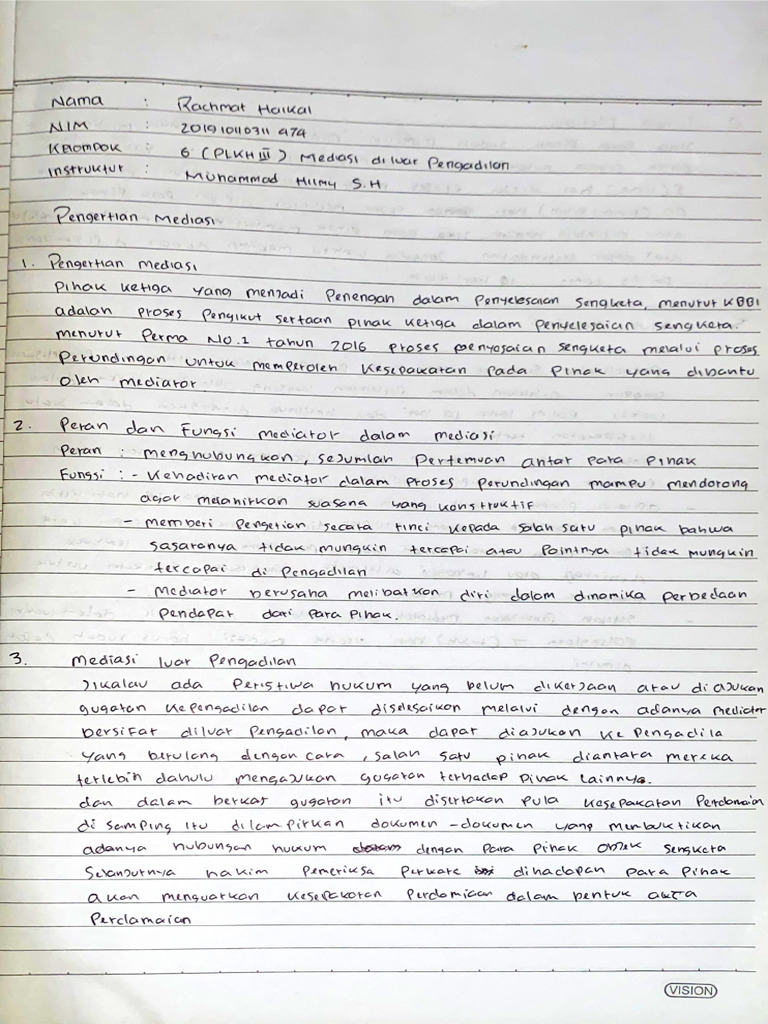 Nama : Rachmat Haikal
NIM : 201910110311 474
Kelompok : 6 (PLKH III) Mediasi diluar Pengadilan
Instruktur : Muhammad Hilmy S.H
Pengertian Mediasi
1. Pengertian mediasi
Pihak ketiga yang menjadi Penengah dalam Penyelesaian Sengketa, menurut KBBI
adalah proses Pengikut sertaan pihak ketiga dalam Penyelesaian sengketa.
menurut Perma No.1 tahun 2016 proses penyosaian sengketa melalui proses
Perundingan untuk memperoleh Kesepakatan pada Pihak yang dibantu
Oleh mediator
2. Peran dan Fungsi mediator dalam mediasi
Peran : menghubungkan, sejumlah Pertemuan antar para Pihak
Fungsi : - Kehadiran mediator dalam proses Perundingan mampu mendorong
agar melahirkan suasana yang konstruktif
- memberi Pengetian secara rinci kepada salah satu pihak bahwa
sasaranya tidak mungkin tercapai atau Pointnya tidak mungkin
tercapai di Pengadilan
- Mediator berusaha melibatkan diri dalam dinamika perbedaan
Pendapat dari Para Pihak.
3. Mediasi luar Pengadilan
Jikalau ada Peristiwa hukum yang belum dikerjaan atau di ajukan
gugatan kepengadilan dapat diselesaikan melalui dengan adanya mediator
bersifat diluar Pengadilan, maka dapat diajukan ke Pengadila
yang berulang dengan cara, salah satu pihak diantara mereka
terlebih dahulu mengajukan gugatan terhadap Pihak lainnya.
dan dalam berkas gugatan itu disertakan pula kesepakatan Perdamaian
di samping itu dilampirkan dokumen-dokumen yang membuktikan
adanya hubungan hukum dengan Para Pihak Objek Sengketa
Selanjutnya hakim Pemeriksa Perkara dihadapan para Pihak
akan menguatkan kesepakatan Perdamiaan dalam bentuk akta
Perdamaian
VISION